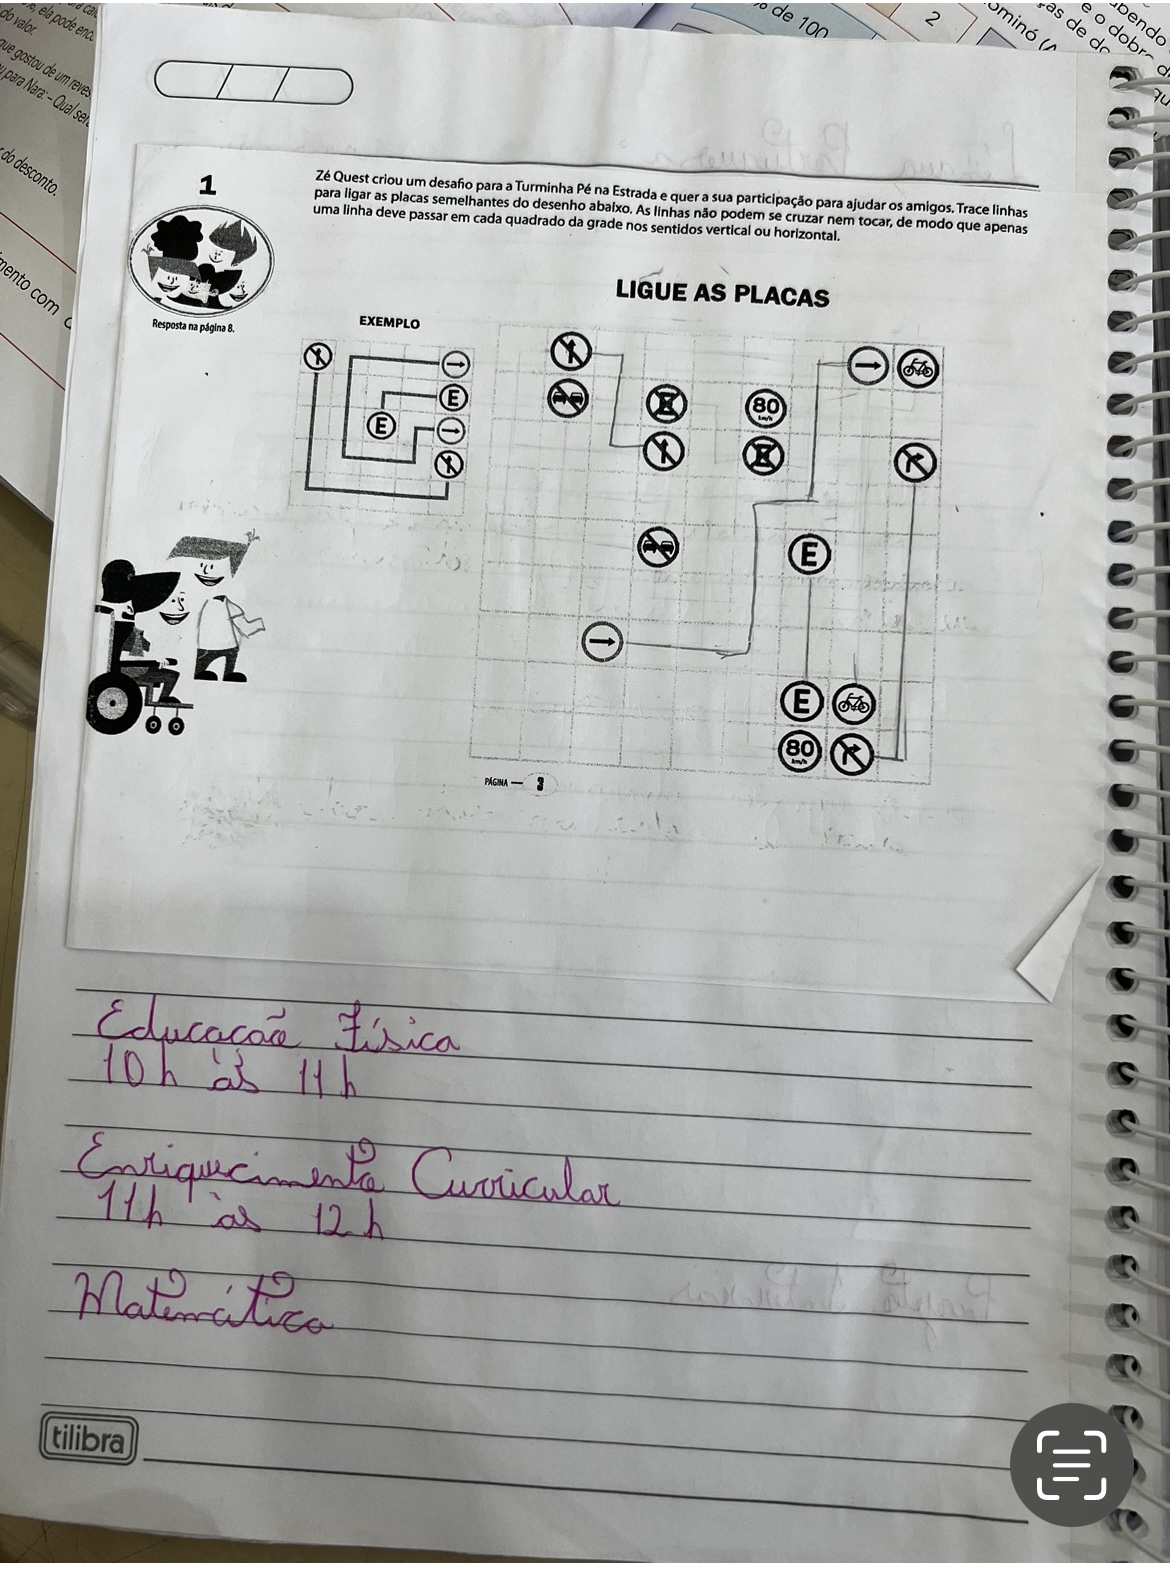 do valor.
, ela pode enc
que gostou de um
para Nara: – Qual
do desconto.
mento com
de 100
2
ominó
ças de
e o dobro
1
Zé Quest criou um desafio para a Turminha Pé na Estrada e quer a sua participação para ajudar os amigos. Trace linhas
para ligar as placas semelhantes do desenho abaixo. As linhas não podem se cruzar nem tocar, de modo que apenas
uma linha deve passar em cada quadrado da grade nos sentidos vertical ou horizontal.
Resposta na página 8.
LIGUE AS PLACAS
EXEMPLO
E
E
80
km/h
E
E
80
km/h
PÁGINA — 3
Educação Física
10h às 11h
Enriquecimento Curricular
11h às 12h
Matemática
tilibra